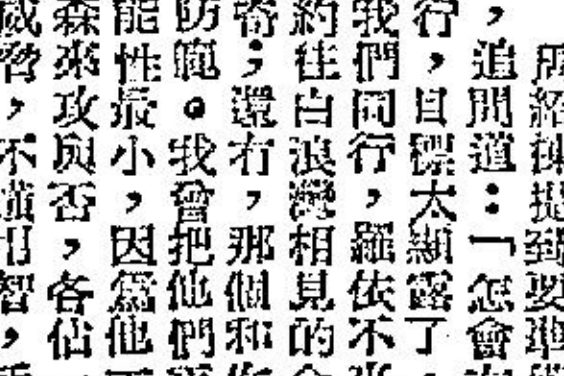 提到要準
，追問道：「怎會
行，目標太顯露了
我們同行，羅依不
約往白浪灣相見的
；還有，那個和
防範。我曾把他們
能性最小，因爲他
森來攻與否，各佔
威脅，不智，